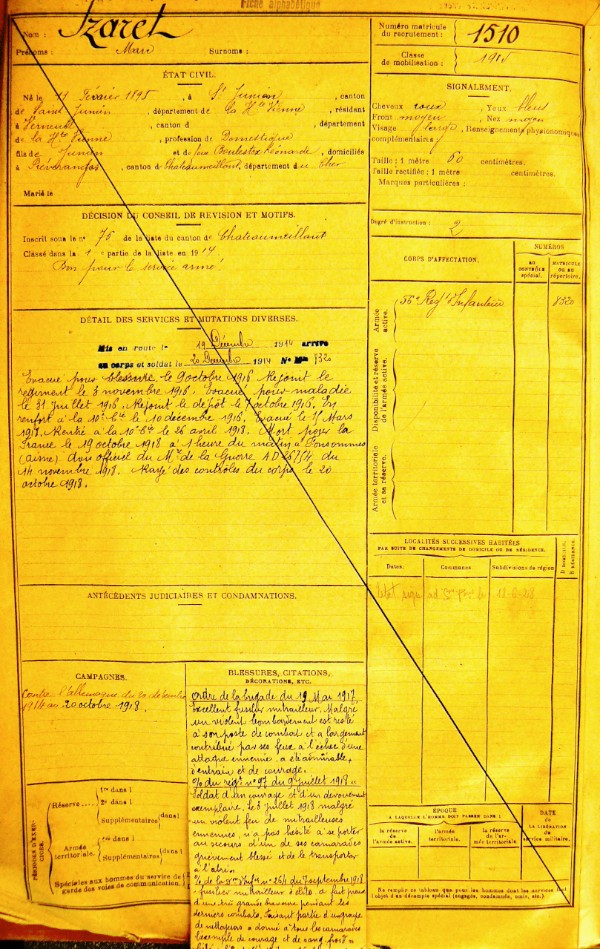 Fiche alphabétique
Nom : Izaret
Prénoms : Surnoms :
Numéro matricule du recrutement : 1510
Classe de mobilisation :
ÉTAT CIVIL.
Né le 11 février 1895, à St Junien, canton
de Saint Junien, département de la Hte Vienne, résidant
à Verneuil, canton d département
de la Hte Vienne, profession de Domestique
fils de Junien et de feu Léonarde, domiciliés
à Préveranges, canton de Chateaumeillant, département du Cher
Marié le
SIGNALEMENT.
Cheveux roux, Yeux bleus
Front moyen, Nez moyen
Visage large, Renseignements physionomiques
complémentaires :
Taille : 1 mètre 60 centimètres.
Taille rectifiée : 1 mètre centimètres.
Marques particulières :
Degré d'instruction : 2
DÉCISION DU CONSEIL DE REVISION ET MOTIFS.
Inscrit sous le no 76 de la liste du canton de Chateaumeillant
Classé dans la 1e partie de la liste en 1914
Bon pour le service armé
CORPS D'AFFECTATION.
NUMÉROS
AU CONTRÔLE spécial.
MATRICULE OU AU répertoire.
Armée active.
56e Régt d'Infanterie
8520
Disponibilité et réserve de l'armée active.
Armée territoriale et sa réserve.
DÉTAIL DES SERVICES ET MUTATIONS DIVERSES.
Mis en route le 19 Décembre 1914 arrivé
au corps et soldat le 20 Décembre 1914 No Mle
Evacué pour blessure le 9 octobre 1916 Rejoint le
régiment le 3 novembre 1916. Evacué pour maladie
le 31 juillet 1916. Rejoint le dépôt le 7 octobre 1916. En
renfort à la 10e Cie le 10 décembre 1916. Evacué le 17 Mars
1917. Rentré à la 10e Cie le 26 avril 1918. Mort pour la
France le 19 octobre 1918 à 1 heure du matin à Fonsommes
(aisne) avis officiel du Mre de la Guerre AD du
14 novembre 1918. Rayé des contrôles du corps le 20
octobre 1918.
LOCALITÉS SUCCESSIVES HABITÉES
PAR SUITE DE CHANGEMENTS DE DOMICILE OU DE RÉSIDENCE.
Dates. Communes. Subdivisions de région
D domicile.
R résidence.
ANTÉCÉDENTS JUDICIAIRES ET CONDAMNATIONS.
CAMPAGNES.
Contre l'Allemagne du 20 décembre
1914 au 20 octobre 1918.
BLESSURES, CITATIONS,
DÉCORATIONS, ETC.
Ordre de la brigade du 19 Mai 1917.
excellent fusilier mitrailleur. Malgré
un violent bombardement est resté
à son poste de combat et a largement
contribué par ses feux à l'échec d'une
attaque ennemie. a été admirable
d'entrain et de courage.
O/ du régt no 97 du 9 juillet 1918
Soldat d'un courage et d'un dévouement
exemplaire, le 8 juillet 1918 malgré
un violent feu de mitrailleuses
ennemies n'a pas hésité à se porter
au secours d'un de ses camarades
grièvement blessé et de le transporter
à l'abri.
no 264 du 7 septembre 1918
fusilier mitrailleur d'élite. a fait preuve
d'une très grande bravoure pendant les
derniers combats. Faisant partie d'un groupe
de nettoyeurs a donné à tous les camarades
l'exemple de courage et de sang froid
PÉRIODES D'EXERCICES.
Réserve
1re dans l
2e dans l
Supplémentaires dans l
Armée territoriale.
1re dans l
Supplémentaires dans l
Spéciales aux hommes du service de
garde des voies de communication.
ÉPOQUE
À LAQUELLE L'HOMME DOIT PASSER DANS :
la réserve de l'armée active.
l'armée territoriale.
la réserve de l'armée territoriale.
DATE DE LA LIBÉRATION du service militaire.
Ne remplir ce tableau que pour les hommes dont les services font
l'objet d'un décompte spécial (engagés, condamnés, omis, etc.)